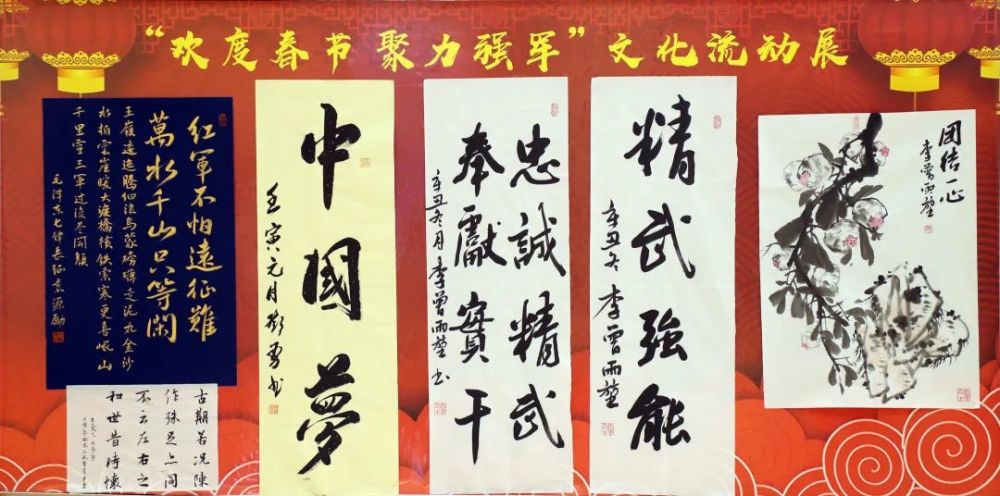 “欢度春节 聚力强军”文化流动展
红軍不怕遠征難
萬水千山只等閑
五嶺逶迤騰細浪烏蒙磅礴走泥丸金沙
水拍雲崖暖大渡橋横铁索寒更喜岷山
千里雪三軍过後尽開顏
毛泽东七律长征
古期若况陳
作殊足上同
不云左右之
和世昔時懷
中國夢
壬寅元月
忠誠精武
奉獻實干
辛丑冬月 李曾雨堃书
精武強能
辛丑冬 李曾雨堃
团结一心
李曾雨堃